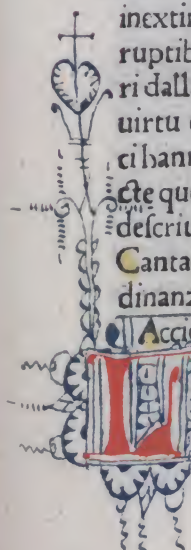 inextin
ruptib
ri dall
uirtu
ci hann
cte que
descriu
Canta
dinanz
Accio
L